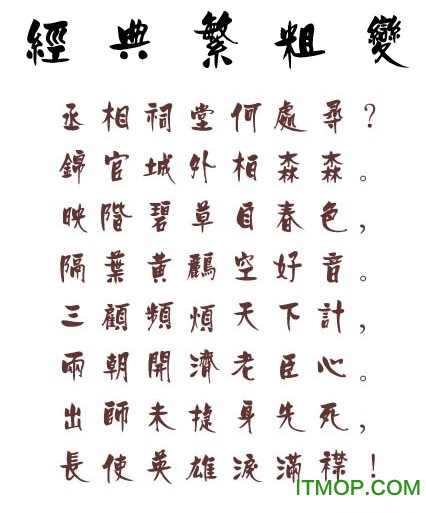 經典繁粗變
丞相祠堂何處尋?
錦官城外柏森森。
映階碧草自春色,
隔葉黃鸝空好音。
三顧頻煩天下計,
兩朝開濟老臣心。
出師未捷身先死,
長使英雄淚滿襟!
ITMOP.COM